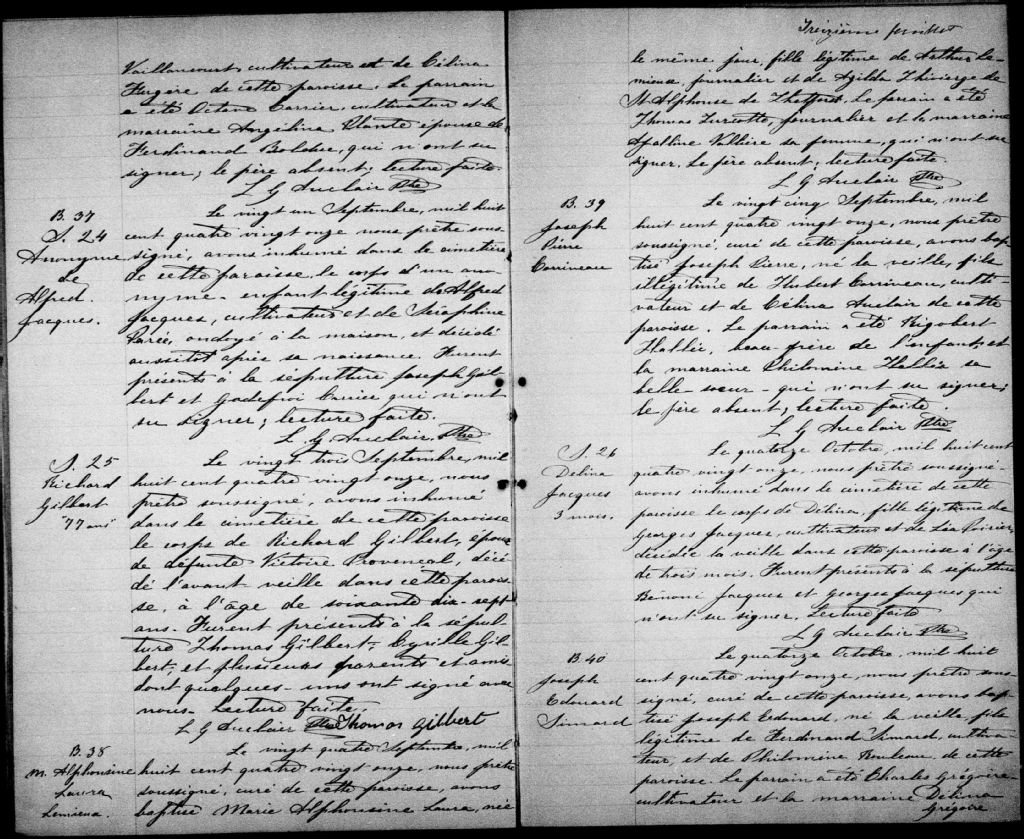 Vaillancourt, cultivateur et de Célina
Fugère de cette paroisse. Le parrain
a été Octave Carrier, cultivateur et la
marraine Angélina Plante épouse de
Ferdinand Bolduc, qui n'ont su
signer; le père absent; lecture faite.
L G Auclair Ptre
B. 37
S. 24
Anonyme
de
Alfred
Jacques.
Le vingt un Septembre, mil huit
cent quatre vingt onze nous prêtre sous-
signé, avons inhumé dans le cimetière
de cette paroisse, le corps d'un ano-
nyme - enfant légitime de Alfred
Jacques, cultivateur et de Séraphine
Paré, ondoyé à la maison, et décédé
aussitot après sa naissance. Furent
présents à la sépulture Joseph Gil-
bert et Godefroi Carrier qui n'ont
su signer; lecture faite.
L. G Auclair Ptre
S. 25
Richard
Gilbert
77 ans
Le vingt trois Septembre, mil
huit cent quatre vingt onze, nous
prêtre soussigné, avons inhumé
dans le cimetière de cette paroisse
le corps de Richard Gilbert, époux
de défunte Victoire Provencal, décé-
dé l'avant veille dans cette parois-
se, à l'âge de soixante dix-sept
ans. Furent présents à la sépul-
ture Thomas Gilbert, Cyrille Gil-
bert, et plusieurs parents et amis
dont quelques-uns ont signé avec
nous. Lecture faite.
L G Auclair Ptre Thomas Gilbert
B. 38
M. Alphonsine
Laura
Lemieux.
Le vingt quatre Septembre, mil
huit cent quatre vingt onze, nous prêtre
soussigné, curé de cette paroisse, avons
baptisé Marie Alphonsine Laura, née
Treizième feuillet
le même jour, fille légitime de Arthur Le-
mieux, journalier et de Agilda Thivierge de
St Alphonse de Thetford. Le parrain a été
Thomas Turcotte, journalier et la marraine
Vallière sa femme, qui n'ont su
signer. Le père absent; lecture faite
L G Auclair Ptre
B. 39
Joseph
Pierre
Corriveau
Le vingt cinq Septembre, mil
huit cent quatre vingt onze, nous prêtre
soussigné, curé de cette paroisse, avons bap-
tisé Joseph Pierre, né la veille, fils
légitime de Hubert Corriveau, culti-
vateur et de Célina Auclair de cette
paroisse. Le parrain a été Rigobert
Hallée, beau-frère de l'enfant, et
la marraine Philomine Hallée sa
belle-soeur - qui n'ont su signer;
le père absent; lecture faite.
L G Auclair Ptre
S. 26
Délina
Jacques
3 mois.
Le quatorze Octobre, mil huit cent
quatre vingt onze, nous prêtre soussigné
avons inhumé dans le cimetière de cette
paroisse le corps de Délina, fille légitime de
Georges Jacques, cultivateur et de Léa Poirier,
décédée la veille dans cette paroisse à l'âge
de trois mois. Furent présents à la sépulture
Bénoni Jacques et Georges Jacques qui
n'ont su signer. Lecture faite
L G Auclair Ptre
B. 40
Joseph
Edouard
Simard
Le quatorze Octobre, mil huit
cent quatre vingt onze, nous prêtre sous-
signé, curé de cette paroisse, avons bap-
tisé Joseph Edouard, né la veille, fils
légitime de Ferdinand Simard, cultiva-
teur, et de Philomine Rouleau de cette
paroisse. Le parrain a été Charles Grégoire
cultivateur et la marraine Délina
Grégoire